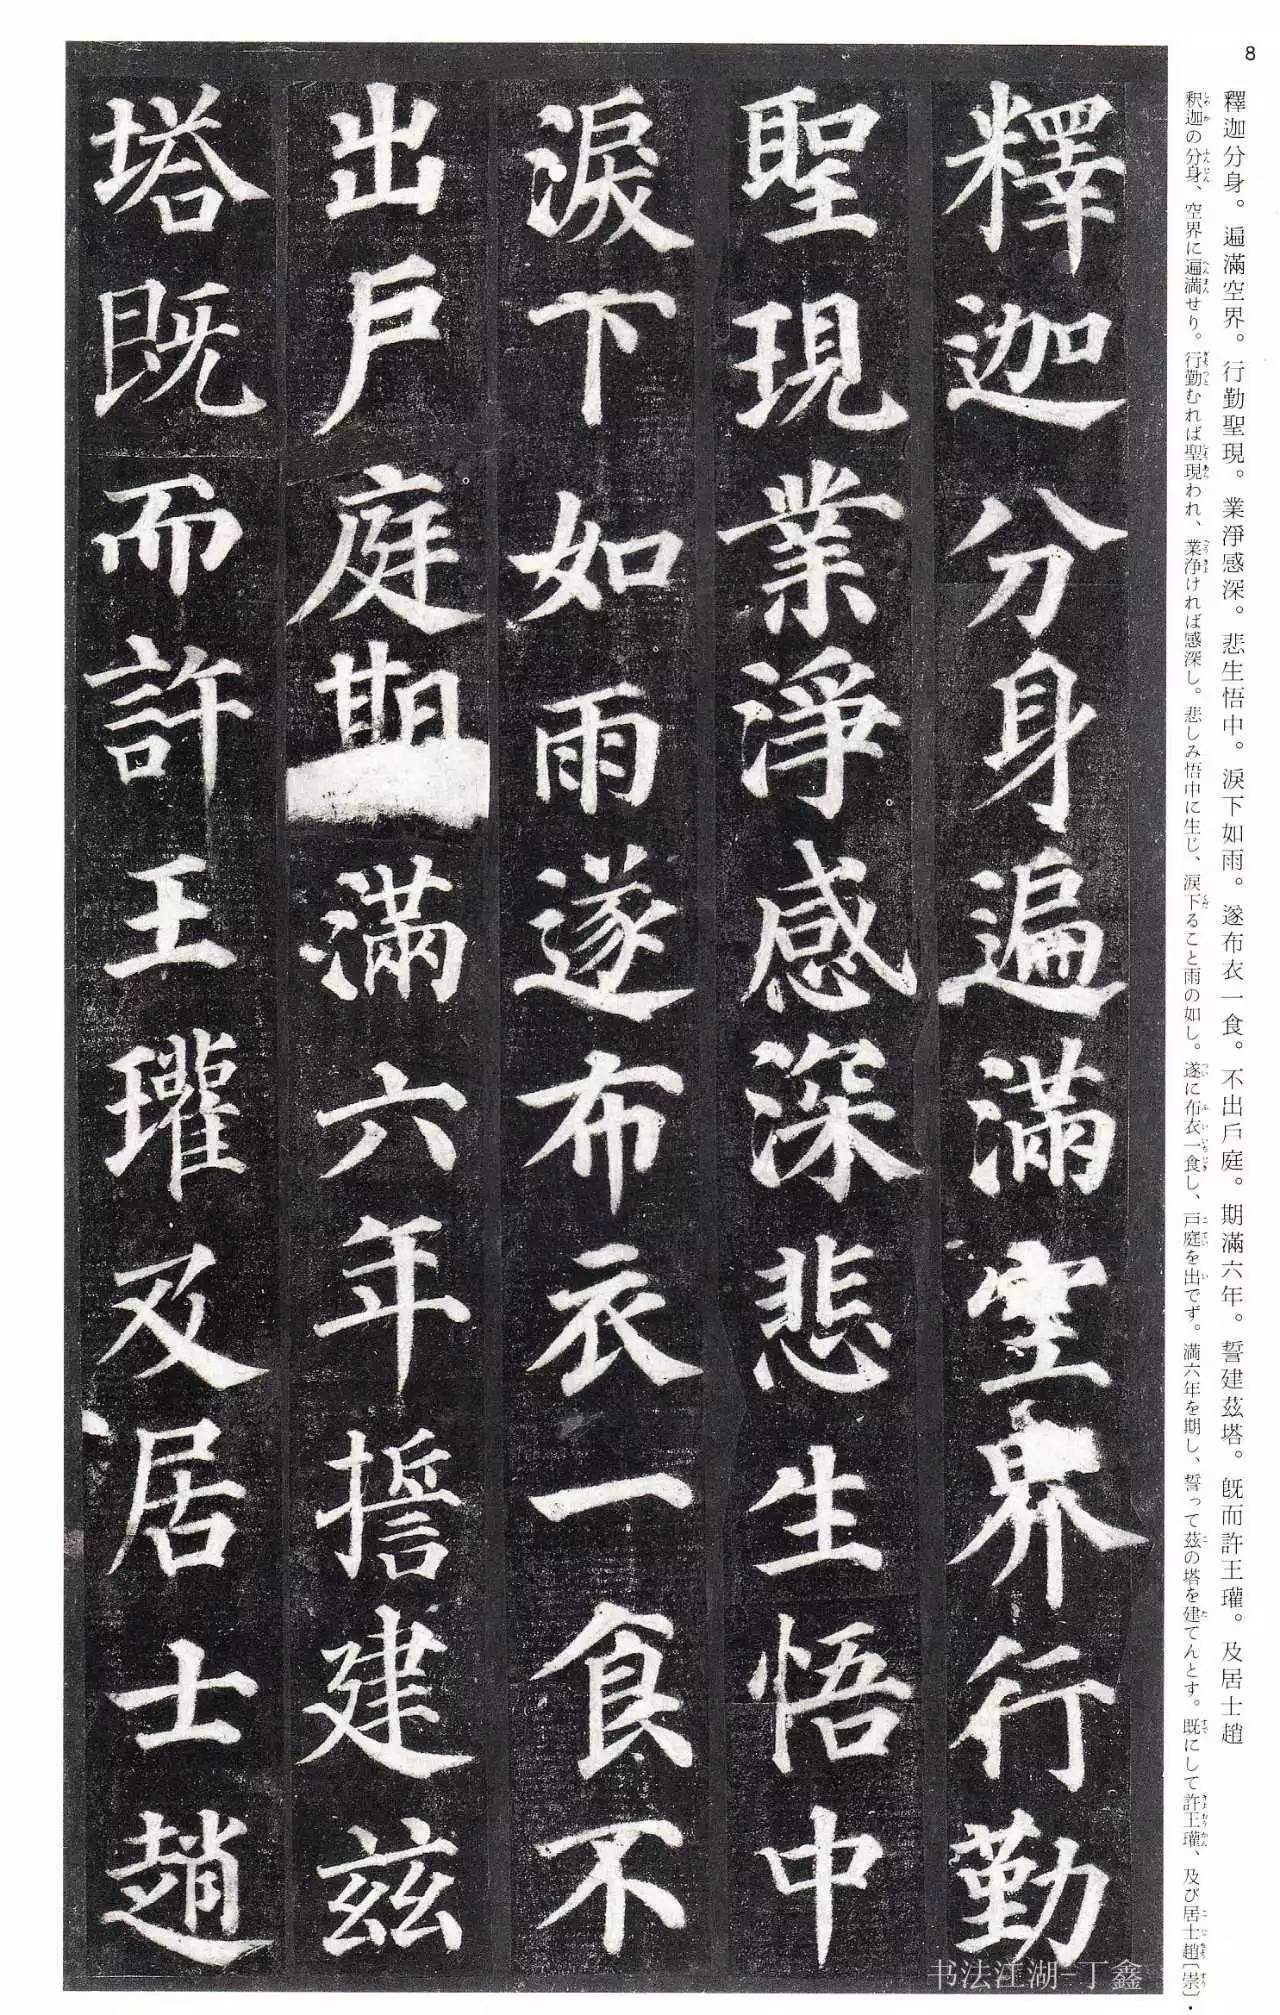 8
釋迦分身。遍滿空界。行勤聖現。業淨感深。悲生悟中。淚下如雨。遂布衣一食。不出戶庭。期滿六年。誓建茲塔。既而許王瓘。及居士趙
釈迦の分身、空界に遍満せり。行勤むれば聖現われ、業浄ければ感深し。悲しみ悟中に生じ、涙下ること雨の如し。遂に布衣一食し、戸庭を出でず。満六年を期し、誓って茲の塔を建てんとす。既にして許王瓘、及び居士趙〔崇〕・
釋迦分身遍滿空界行勤
聖現業淨感深悲生悟中
淚下如雨遂布衣一食不
出戶庭期滿六年誓建茲
塔既而許王瓘及居士趙
书法江湖-丁鑫